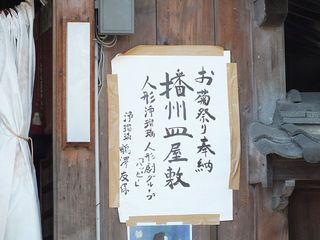 お菊祭り奉納
播州皿屋敷
人形浄瑠璃 人形劇グループ
浄瑠璃 鶴澤友球